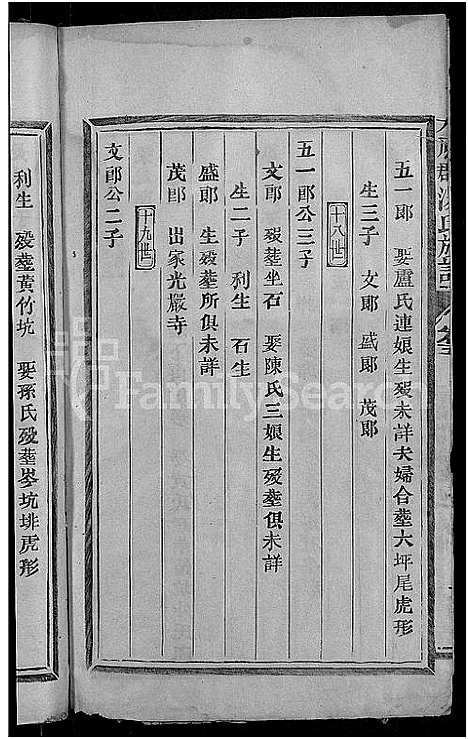 五一郎　娶盧氏連娘生歿未詳夫婦合塟六坪尾虎形
生三子　文郎　盛郎　茂郎
十八世
五一郎公三子
文郎　歿塟坐石　娶陳氏三娘生歿塟俱未詳
生二子　利生　石生
盛郎　生歿塟所俱未詳
茂郎　出家光嚴寺
十九世
文郎公二子
利生　歿塟黃竹坑　娶孫氏歿塟岑坑排虎形
FamilySearch